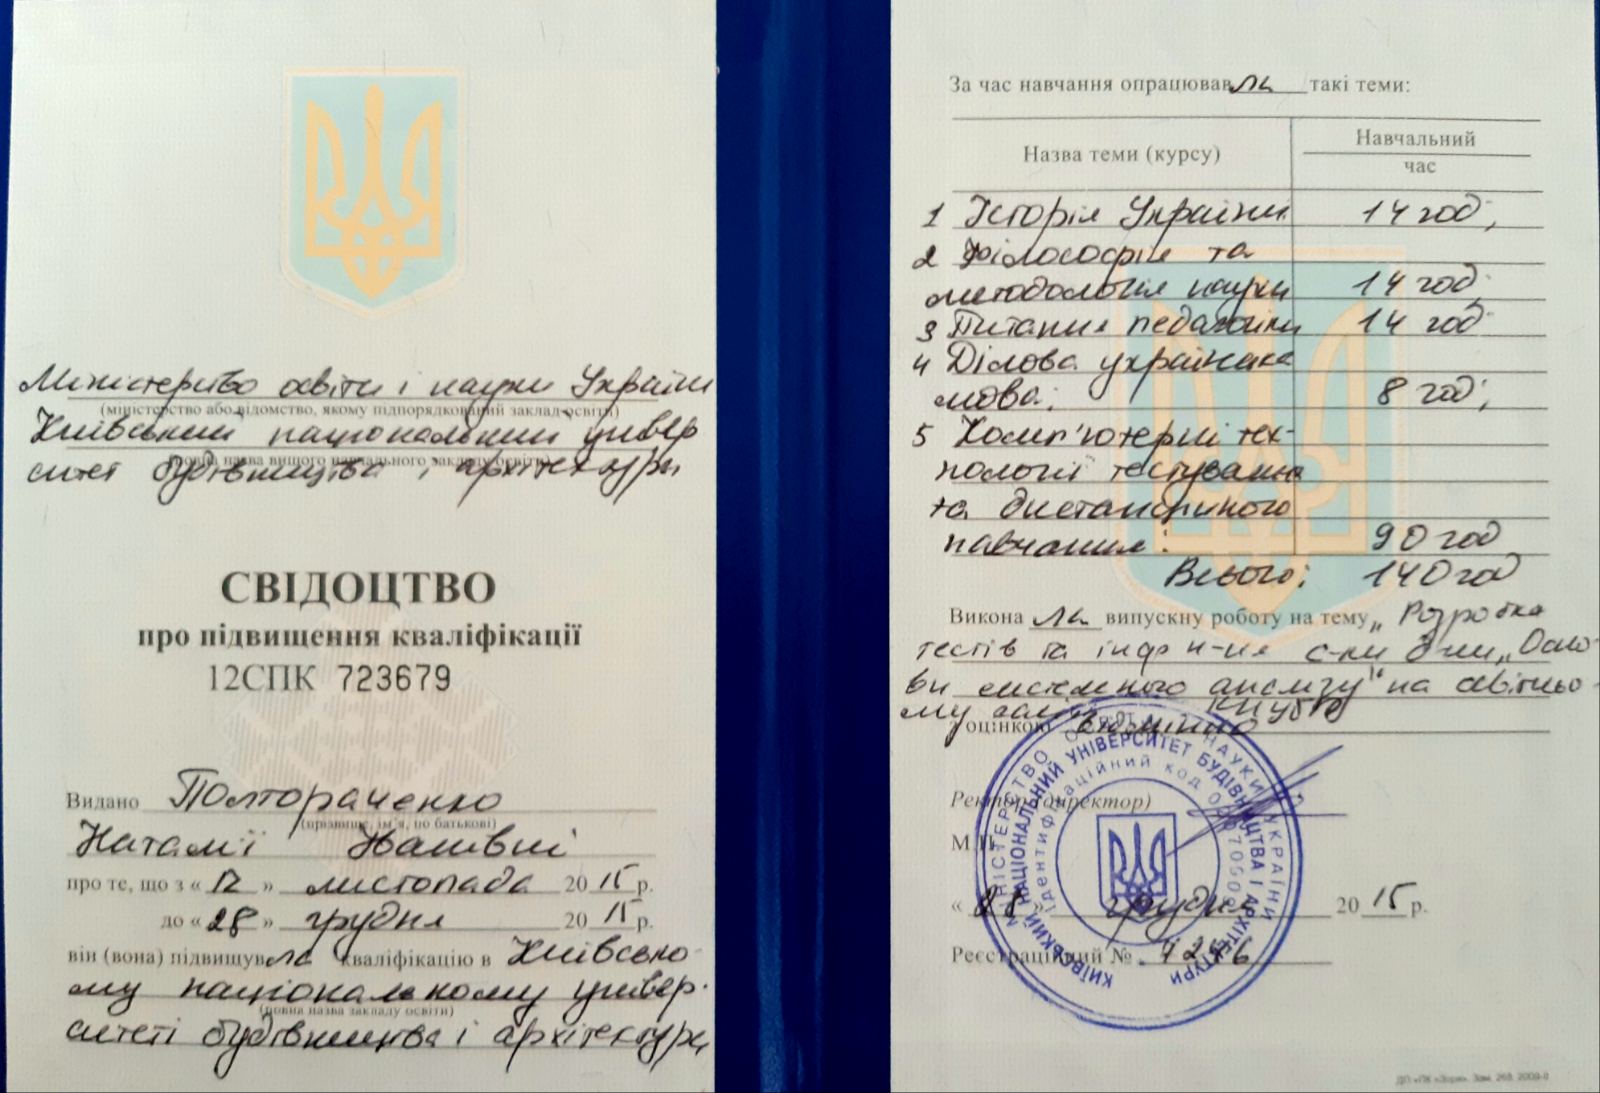 Міністерство освіти і науки України
(міністерство або відомство, якому підпорядкований заклад освіти)
Київський національний універ
(повна назва вищого навчального закладу освіти)
ситет будівництва і архітектури
СВІДОЦТВО
про підвищення кваліфікації
12СПК 723679
Видано Полтораченко
(прізвище, ім'я, по батькові)
Наталії Іванівні
про те, що з « 12 » листопада 20 15 р.
до « 28 » грудня 20 15 р.
він (вона) підвищувала кваліфікацію в Київсько-
му національному універ-
(повна назва закладу освіти)
ситеті будівництва і архітектури
За час навчання опрацювала такі теми:
Назва теми (курсу) Навчальний
час
1 Історія України 14 год;
2 Філософія та
методологія науки 14 год;
3 Питання педагогіки 14 год;
4 Ділова українська
мова; 8 год;
5 Комп'ютерні тех-
нології тестування
та дистанційного
навчання: 90 год
Всього: 140 год
Виконала випускну роботу на тему „Розробка
тестів та інфр н-ня с-ми д-ни „Осно-
ви системного аналізу" на освітньо-
му сайті КНУБА
з оцінкою відмінно
Ректор (директор)
М.П.
« 28 » грудня 20 15 р.
Реєстраційний №
МІНІСТЕРСТВО ОСВІТИ І НАУКИ УКРАЇНИ
КИЇВСЬКИЙ НАЦІОНАЛЬНИЙ УНІВЕРСИТЕТ БУДІВНИЦТВА І АРХІТЕКТУРИ
Ідентифікаційний код
ДП «ПК «Зоря». Зам. 268. 2009-0